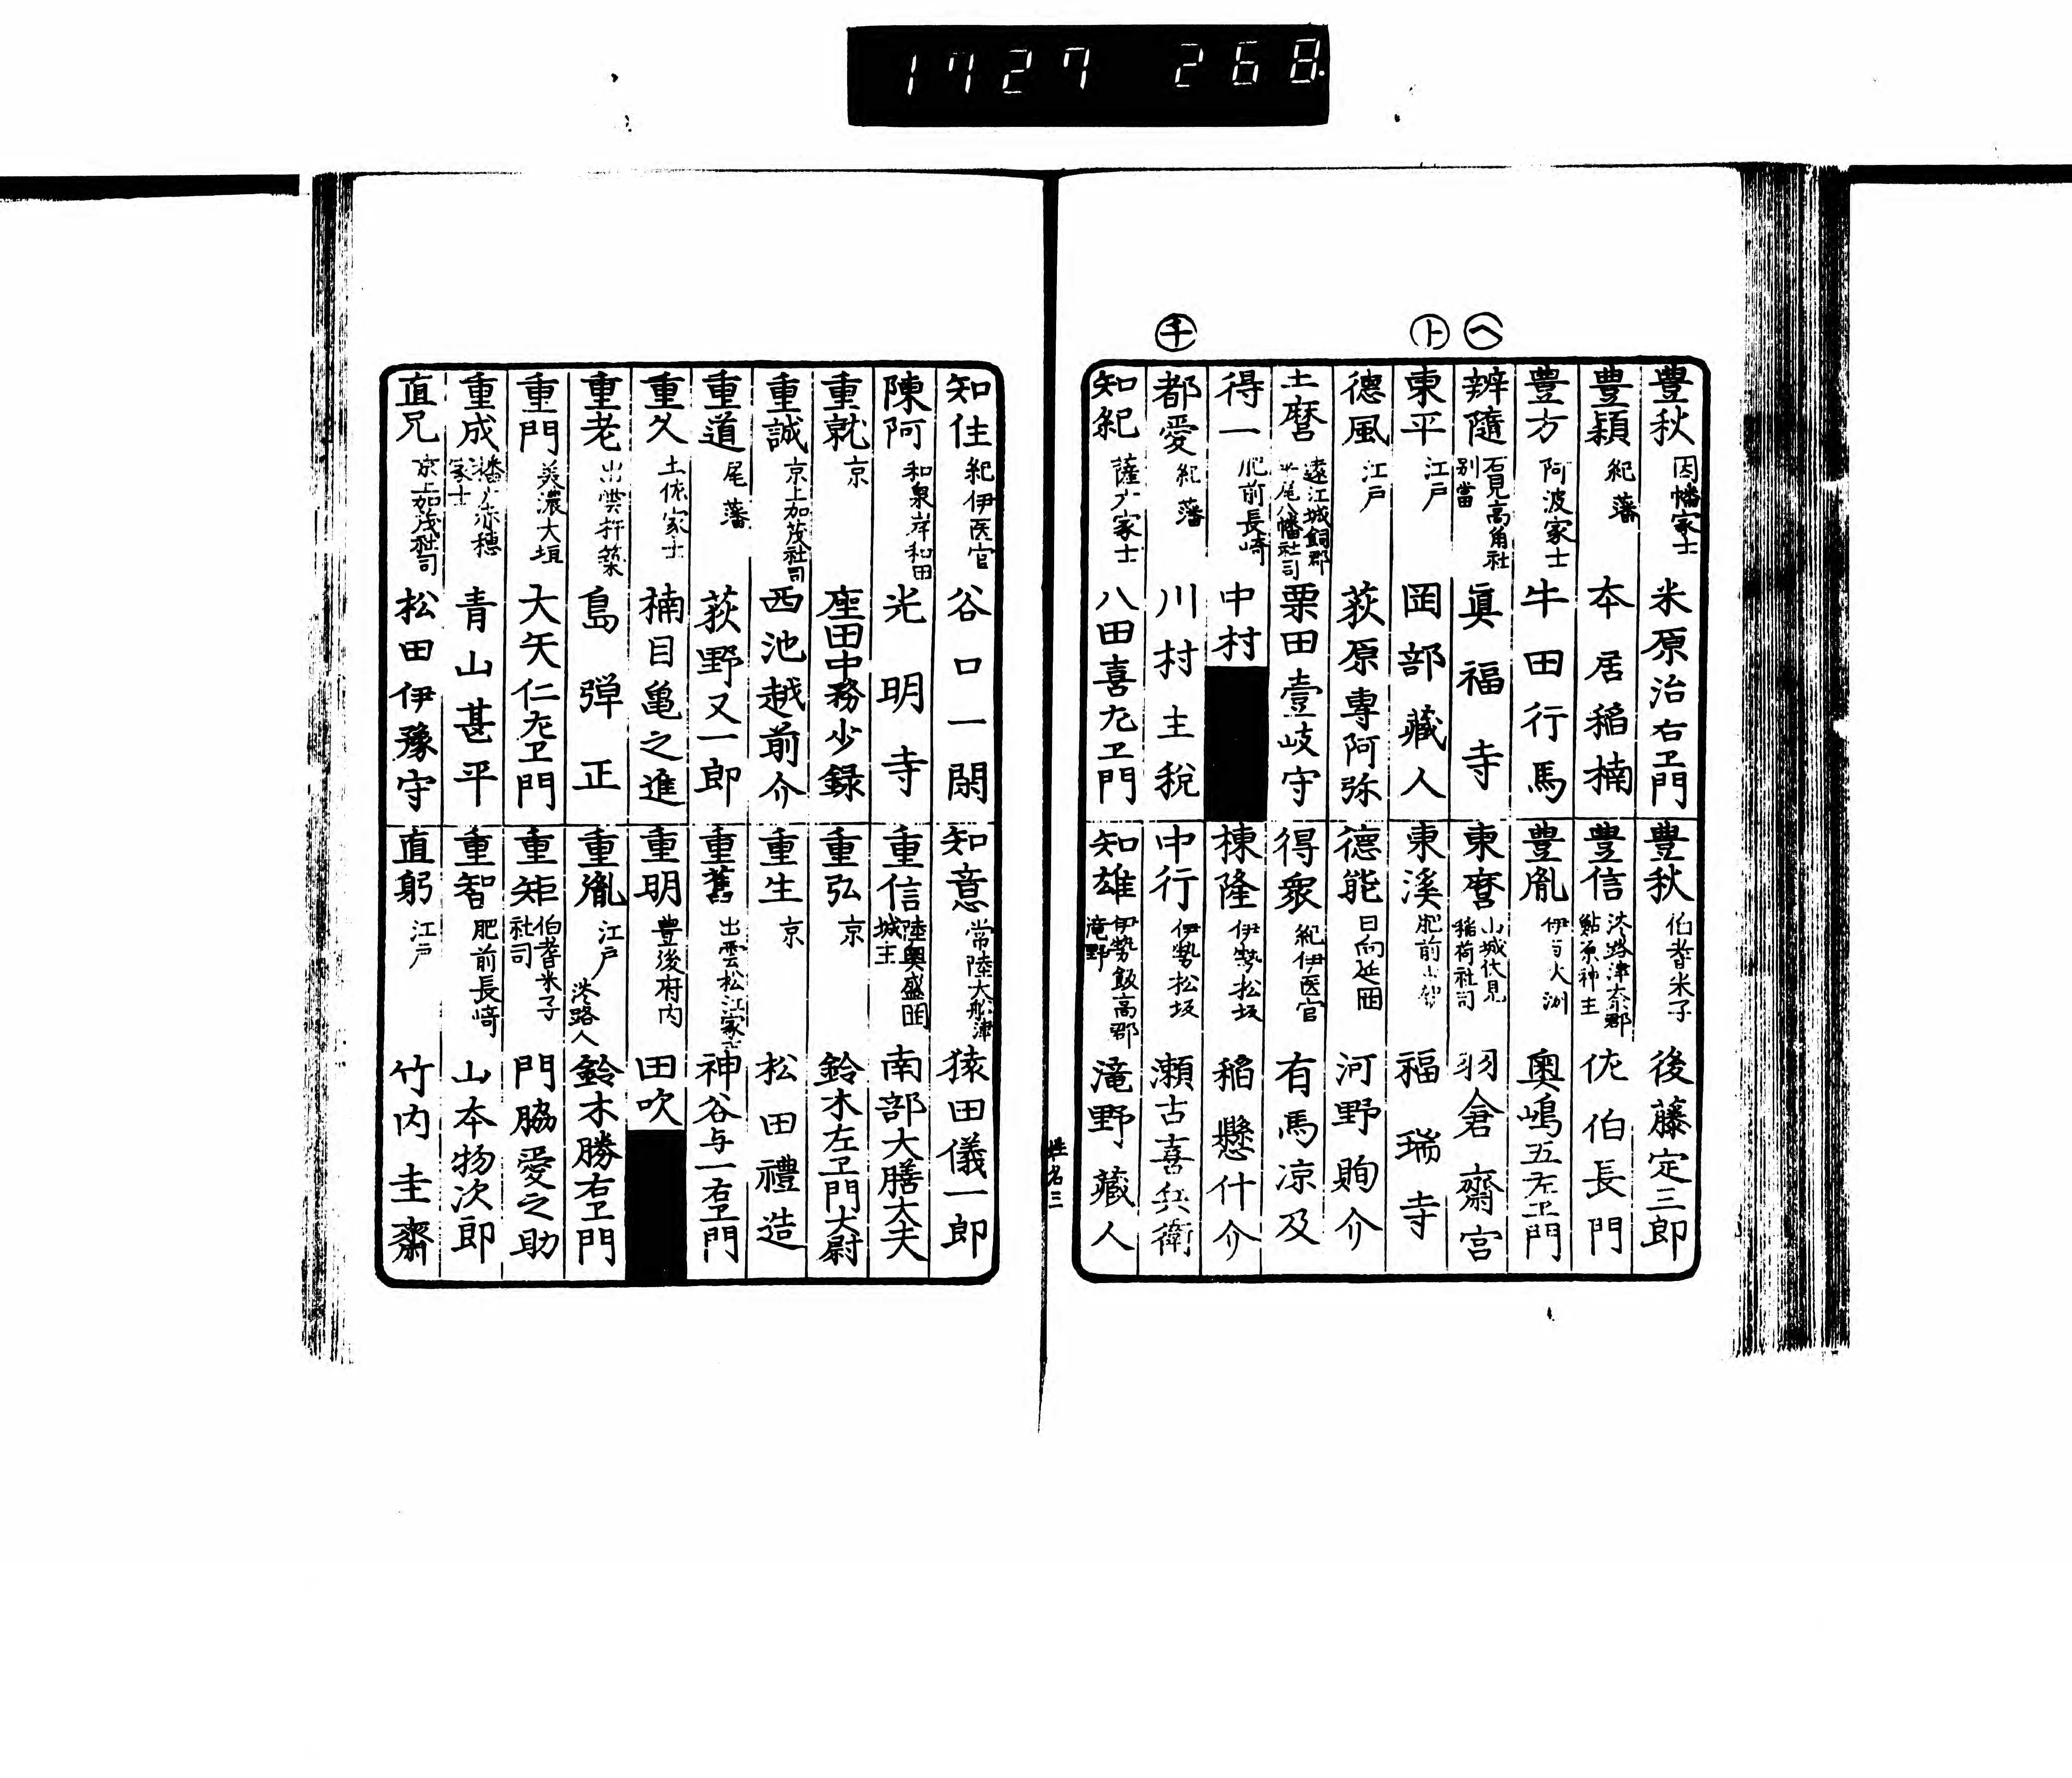 1727 268
㋬
㋣
㋠
豊秋 因幡家士 米原治右ヱ門
豊秋 伯耆米子 後藤定三郎
豊穎 紀藩 本居稲楠
豊信 淡路津奈郡鮎原神主 佐伯長門
豊方 阿波家士 牛田行馬
豊胤 伊与大洲 奥嶋五左ヱ門
辨隨 石見高角社別當 眞福寺
東麿 山城伏見稲荷社司 羽倉齋宮
東平 江戸 岡部藏人
東溪 肥前 福瑞寺
德風 江戸 荻原專阿弥
德能 日向延岡 河野珣介
土麿 遠江城飼郡平尾八幡社司 栗田壹岐守
得衆 紀伊医官 有馬凉及
得一 肥前長崎 中村
棟隆 伊勢松坂 稲懸什介
都愛 紀藩 川村主税
中行 伊勢松坂 瀬古喜兵衛
知紀 薩广家士 八田喜左ヱ門
知雄 伊勢飯高郡滝野 滝野藏人
姓名三
知住 紀伊医官 谷口一閑
知意 常陸大船津 猿田儀一郎
陳阿 和泉岸和田 光明寺
重信 陸奥盛岡城主 南部大膳大夫
重就 京 座田中務少録
重弘 京 鈴木左ヱ門大尉
重誠 京上加茂社司 西池越前介
重生 京 松田禮造
重道 尾藩 荻野又一郎
重舊 出雲松江家士 神谷与一右ヱ門
重久 土佐家士 楠目亀之進
重明 豊後府内 田吹
重老 出雲杵築 島弾正
重胤 江戸 淡路人 鈴木勝右ヱ門
重門 美濃大垣 大矢仁左ヱ門
重矩 伯耆米子社司 門脇愛之助
重成 播广赤穂家士 青山甚平
重智 肥前長崎 山本物次郎
直兄 京上加茂社司 松田伊豫守
直躬 江戸 竹内圭齋